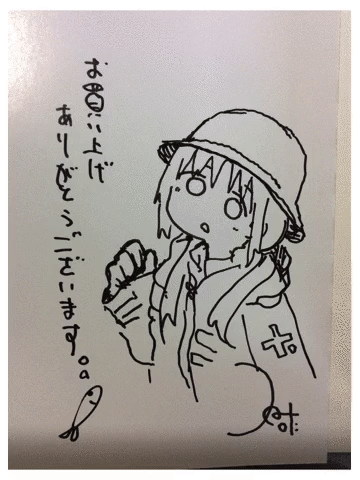 お買い上げ
ありがとうございます。